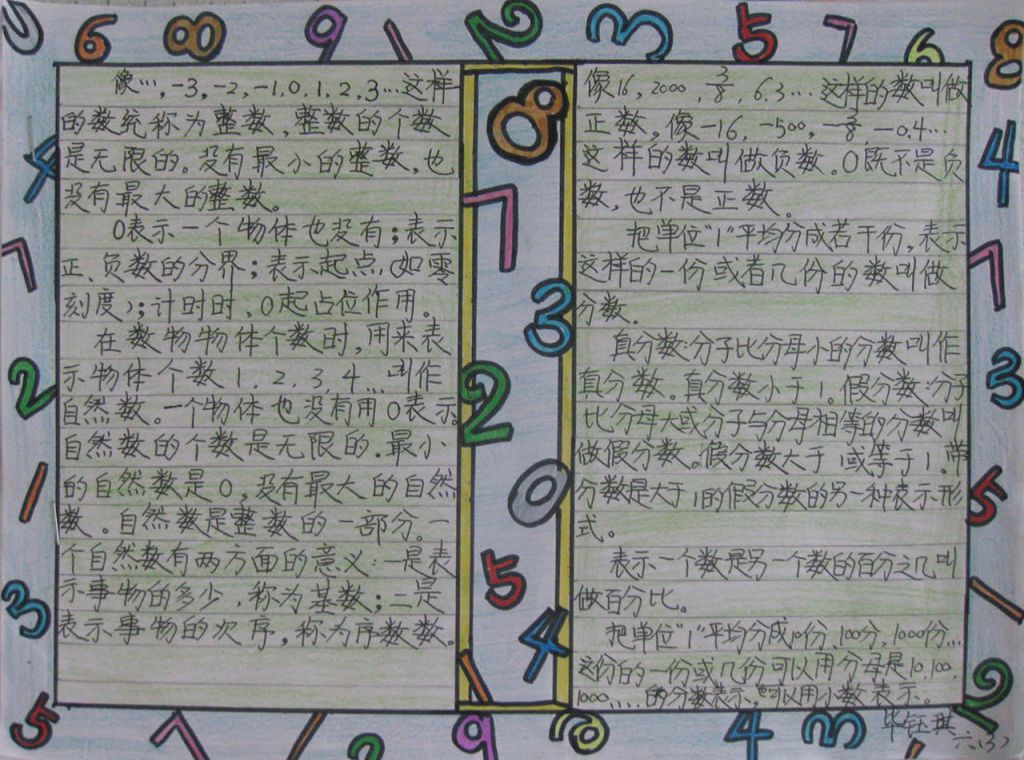 像…，-3，-2，-1.0，1，2，3…这样
的数统称为整数，整数的个数
是无限的。没有最小的整数，也
没有最大的整数。
0表示一个物体也没有；表示
正、负数的分界；表示起点，(如零
刻度)；计时时，0起占位作用。
在数物物体个数时，用来表
示物体个数1，2，3，4…叫作
自然数。一个物体也没有用0表示。
自然数的个数是无限的．最小
的自然数是0，没有最大的自然
数。自然数是整数的一部分。一
个自然数有两方面的意义：一是表
示事物的多少，称为基数；二是
表示事物的次序，称为序数数。
像16，2000，3/8，6.3…这样的数叫做
正数，像-16，-500，-3/8，-0.4…
这样的数叫做负数。0既不是负
数，也不是正数。
把单位"1"平均分成若干份，表示
这样的一份或者几份的数叫做
分数。
真分数：分子比分母小的分数叫作
真分数。真分数小于1．假分数：分子
比分母大或分子与分母相等的分数叫
做假分数。假分数大于1或等于1．带
分数是大于1的假分数的另一种表示形
式。
表示一个数是另一个数的百分之几叫
做百分比。
把单位"1"平均分成10份、100分，1000份…
这份的一份或几份可以用分母是10.100.
1000……的分数表示，也可以用小数表示。
华钰琪
六(3)
6
8
9
1
2
3
5
7
6
8
4
7
2
1
3
5
8
7
3
2
0
5
4
1
4
7
3
5
1
2
7
1
2
9
6
4
3
1